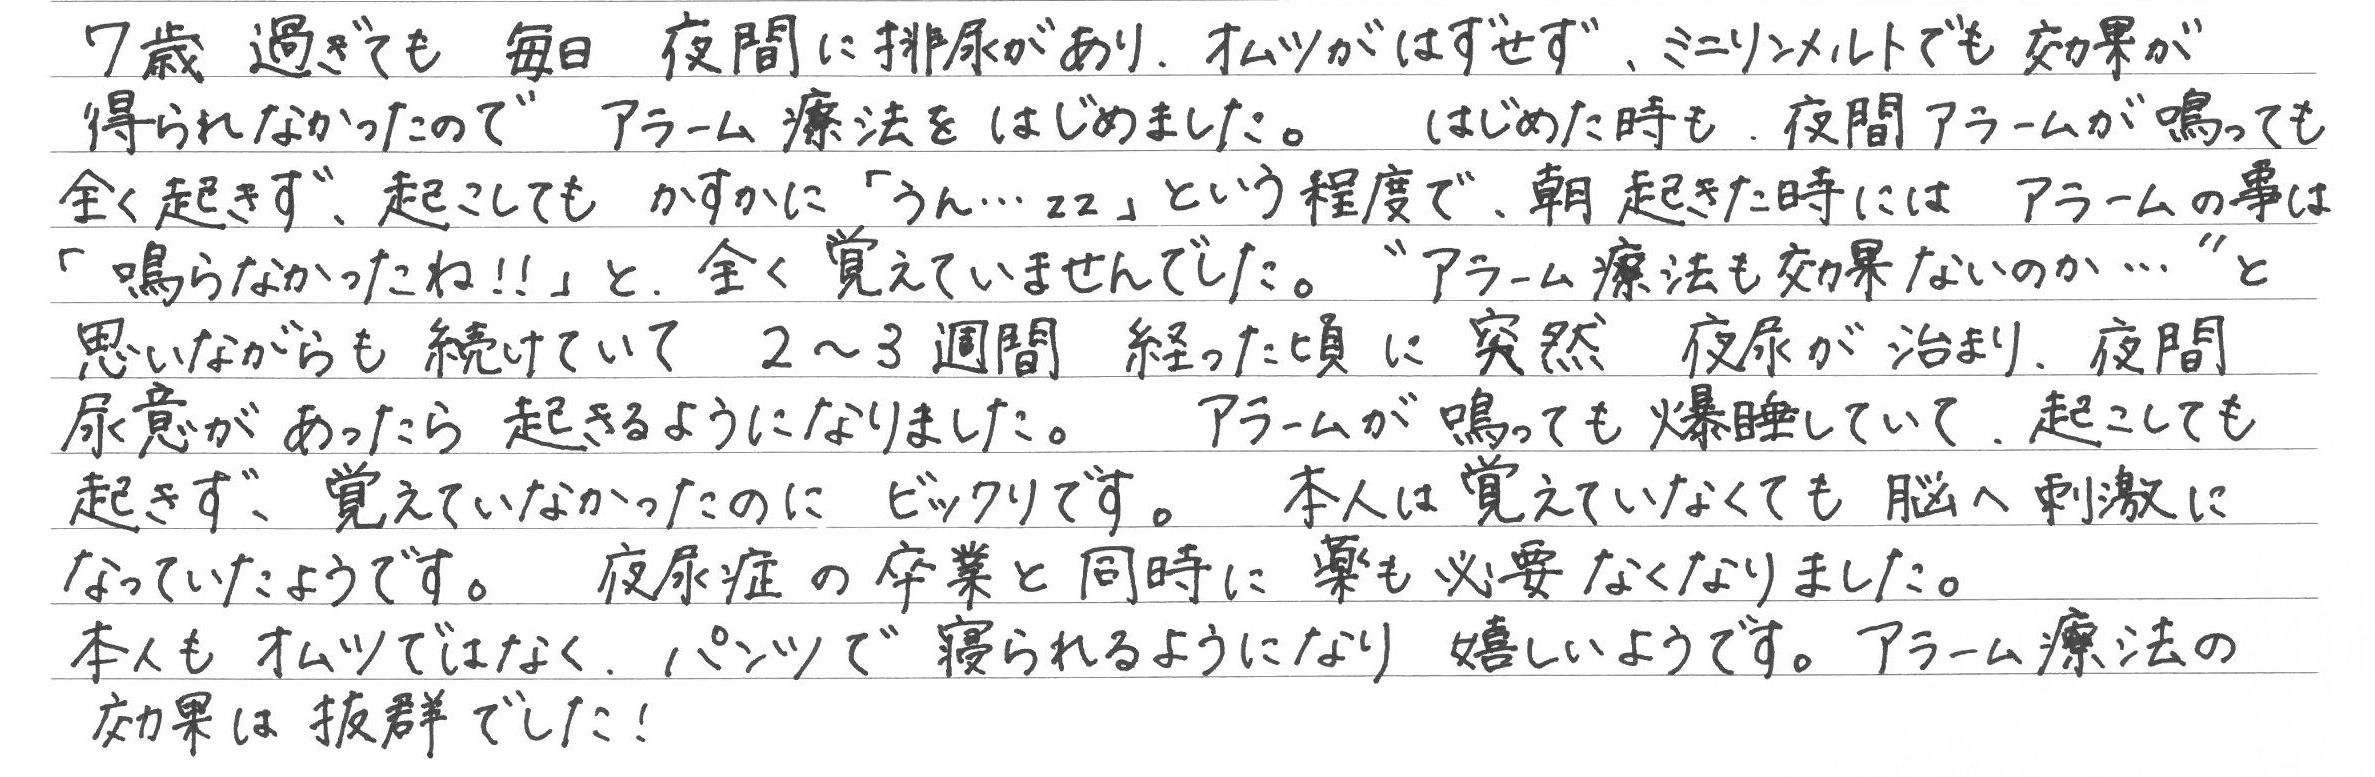 7歳 過ぎても 毎日 夜間に排尿があり、オムツがはずせず、ミニリンメルトでも 効果が
得られなかったので アラーム 療法を はじめました。 はじめた時も、夜間アラームが鳴っても
全く起きず、起こしても かすかに「うん…zz」という程度で、朝 起きた時には アラームの事は
「鳴らなかったね!!」と、全く 覚えていませんでした。 〝アラーム療法も効果ないのか…〟と
思いながらも 続けていて 2〜3週間 経った頃に 突然 夜尿が 治まり、夜間
尿意が あったら 起きるようになりました。 アラームが 鳴っても 爆睡していて、起こしても
起きず、覚えていなかったのに ビックリです。 本人は覚えていなくても 脳へ刺激に
なっていたようです。 夜尿症の卒業と同時に 薬も必要なくなりました。
本人も オムツではなく、パンツで 寝られるようになり 嬉しいようです。アラーム療法の
効果は 抜群でした!